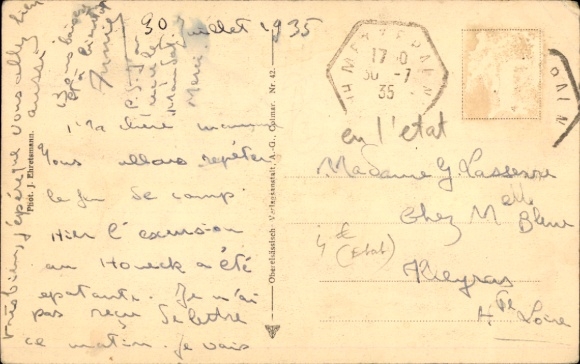 30 juillet 1935
Ma chère maman
Nous allons répéter
le feu de camp.
Hier l'excursion
au Honeck a été
epatante. Je n'ai
pas reçu de lettre
ce matin. Je vais
très bien, j'espère que vous allez bien
aussi
Bons baisers
Annie
P.S.
Merci
Phot. J. Ehretsmann.
Oberelsässisch. Verlagsanstalt A.-G., Colmar. Nr. 42.
17
30 -7
35
en l'etat
Madame G.
Chez Melle
4 €
(Etat)
Hte Loire